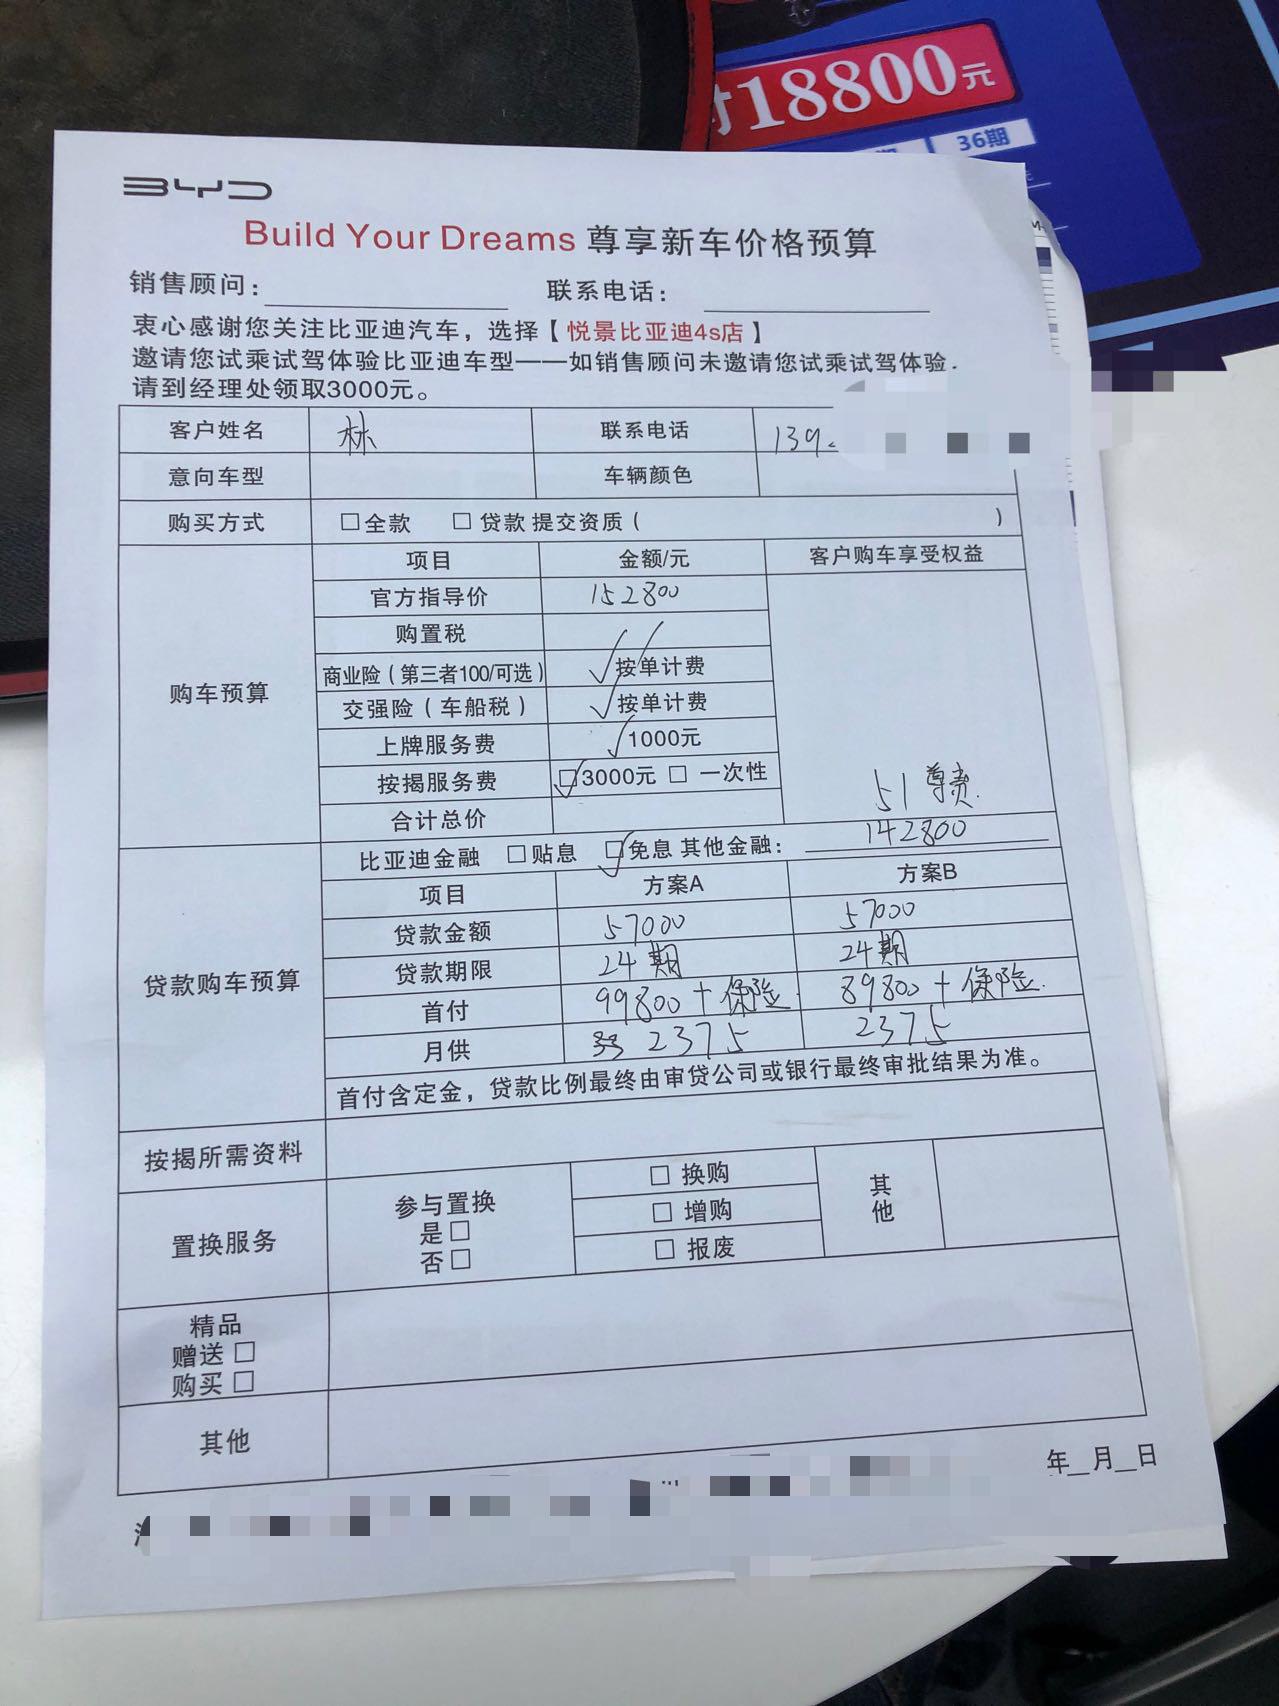 付18800元
36期
BYD
Build Your Dreams 尊享新车价格预算
销售顾问： 联系电话：
衷心感谢您关注比亚迪汽车，选择【悦景比亚迪4s店】
邀请您试乘试驾体验比亚迪车型——如销售顾问未邀请您试乘试驾体验.
请到经理处领取3000元。
客户姓名 林 联系电话 139
意向车型 车辆颜色
购买方式 □全款 □贷款 提交资质（ ）
购车预算 项目 金额/元 客户购车享受权益
官方指导价 152800
购置税
商业险（第三者100/可选） ✓按单计费
交强险（车船税） ✓按单计费
上牌服务费 ✓1000元
按揭服务费 ☑3000元 □ 一次性
合计总价
51尊贵.
比亚迪金融 □贴息 ☑免息 其他金融： 142800
贷款购车预算 项目 方案A 方案B
贷款金额 57000 57000
贷款期限 24期 24期
首付 99800+保险. 89800+保险.
月供 2375 2375
首付含定金，贷款比例最终由审贷公司或银行最终审批结果为准。
按揭所需资料
置换服务 参与置换 是□ 否□ □ 换购 □ 增购 □ 报废 其他
精品
赠送 □
购买 □
其他
年_月_日